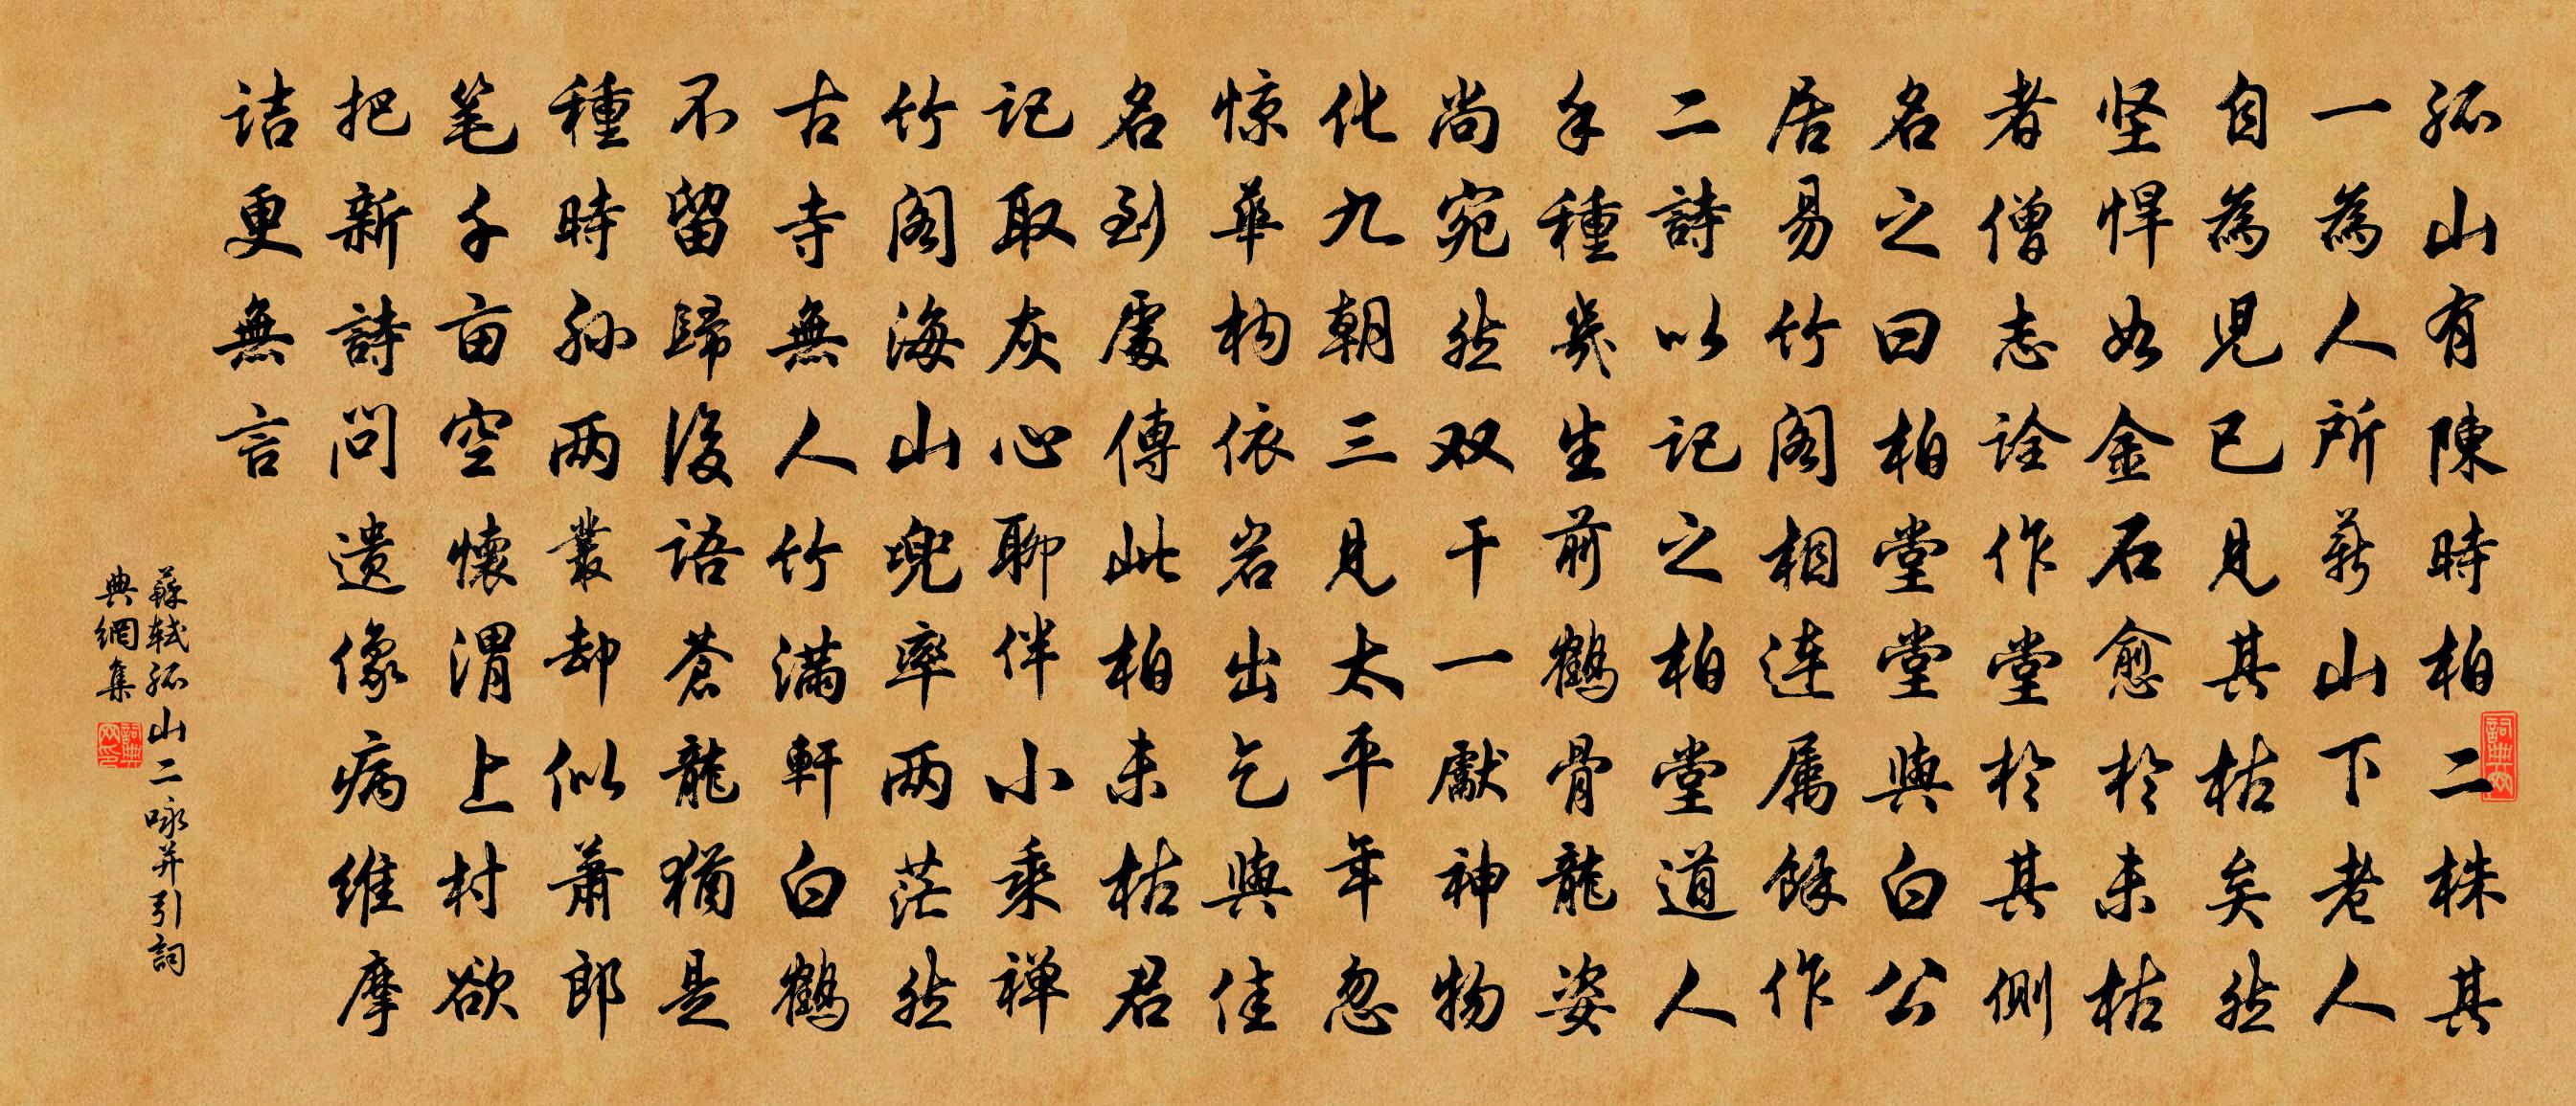 孤山有陳時柏二株其
一為人所薪山下老人
自為児已見其枯矣然
坚悍如金石愈於未枯
者僧志詮作堂於其側
名之曰柏堂堂與白公
居易竹阁相連属餘作
二詩以記之柏堂道人
手種幾生前鶴骨龍姿
尚宛然双干一獻神物
化九朝三見太平年忽
惊華构依岩出乞與佳
名到處傳此柏未枯君
記取灰心聊伴小乘禅
竹阁海山兜率两茫然
古寺無人竹滿軒白鶴
不留歸後語蒼龍猶是
種時孫两叢却似蕭郎
笔千亩空懷渭上村欲
把新詩問遗像病維摩
诘更無言
蘇軾孤山二咏并引詞
典網集
詞典网
詞典网印